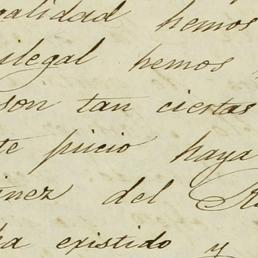 alidad hemos
ilegal hemos
son tan ciertas
te juicio haya
inez del
ha existido y